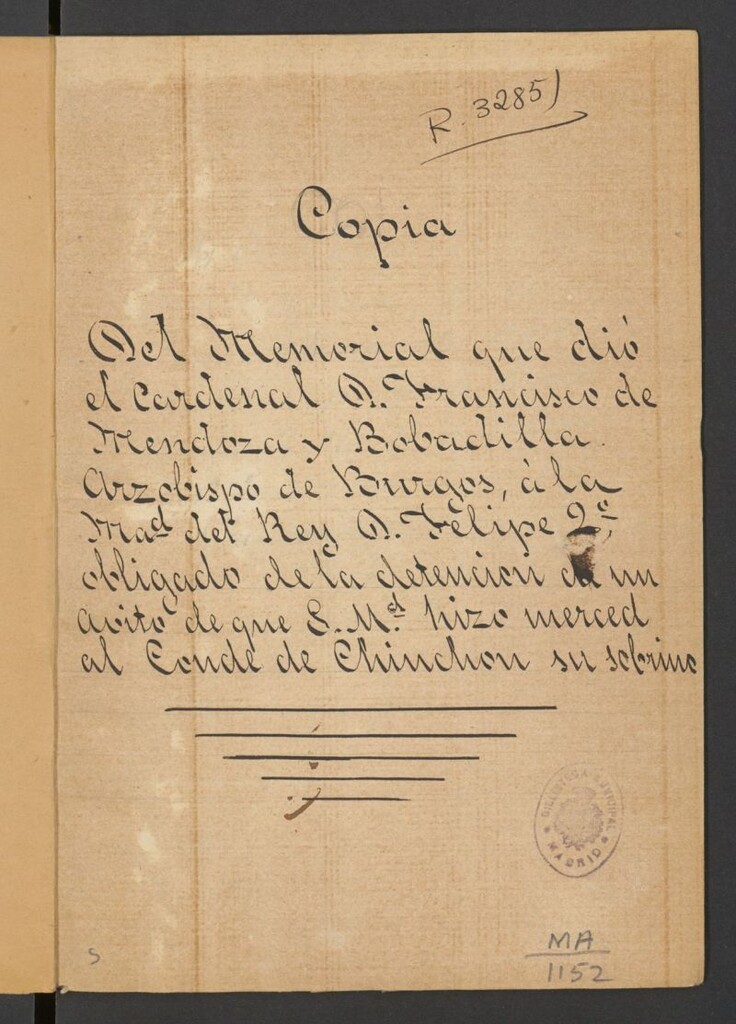 R. 3285)
Copia
Del Memorial que dió
el Cardenal D. Francisco de
Mendoza y Bobadilla.
Arzobispo de Burgos, á la
Mad del Rey D. Felipe 2º,
obligado de la detencion de un
avito de que S. M.d hizo merced
al Conde de Chinchon su sobrino
BIBLIOTECA MUNICIPAL
MADRID
S
MA
1152